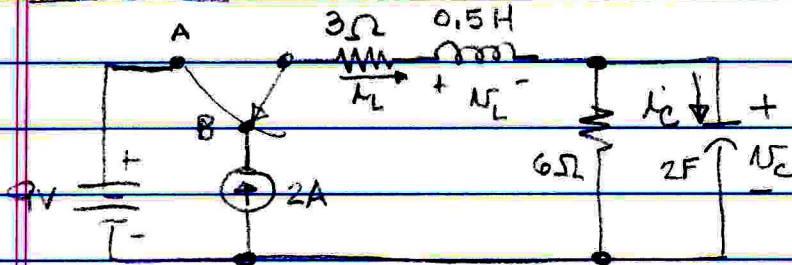 3Ω 0.5H
A
i_L + v_L -
B
i_C +
6Ω 2F v_C
-
9V + 2A
-